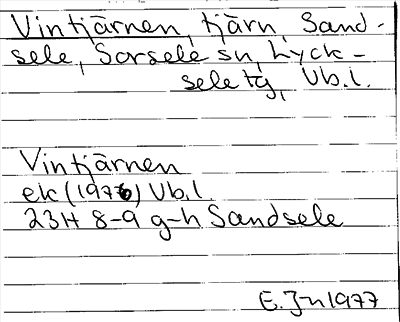 Vintjärnen, tjärn, Sand-
sele, Sorsele sn, Lyck-
sele tg, Vb.l.
Vintjärnen
ek (1976) Vb.l
23H 8-9 g-h Sandsele
E. Jn 1977